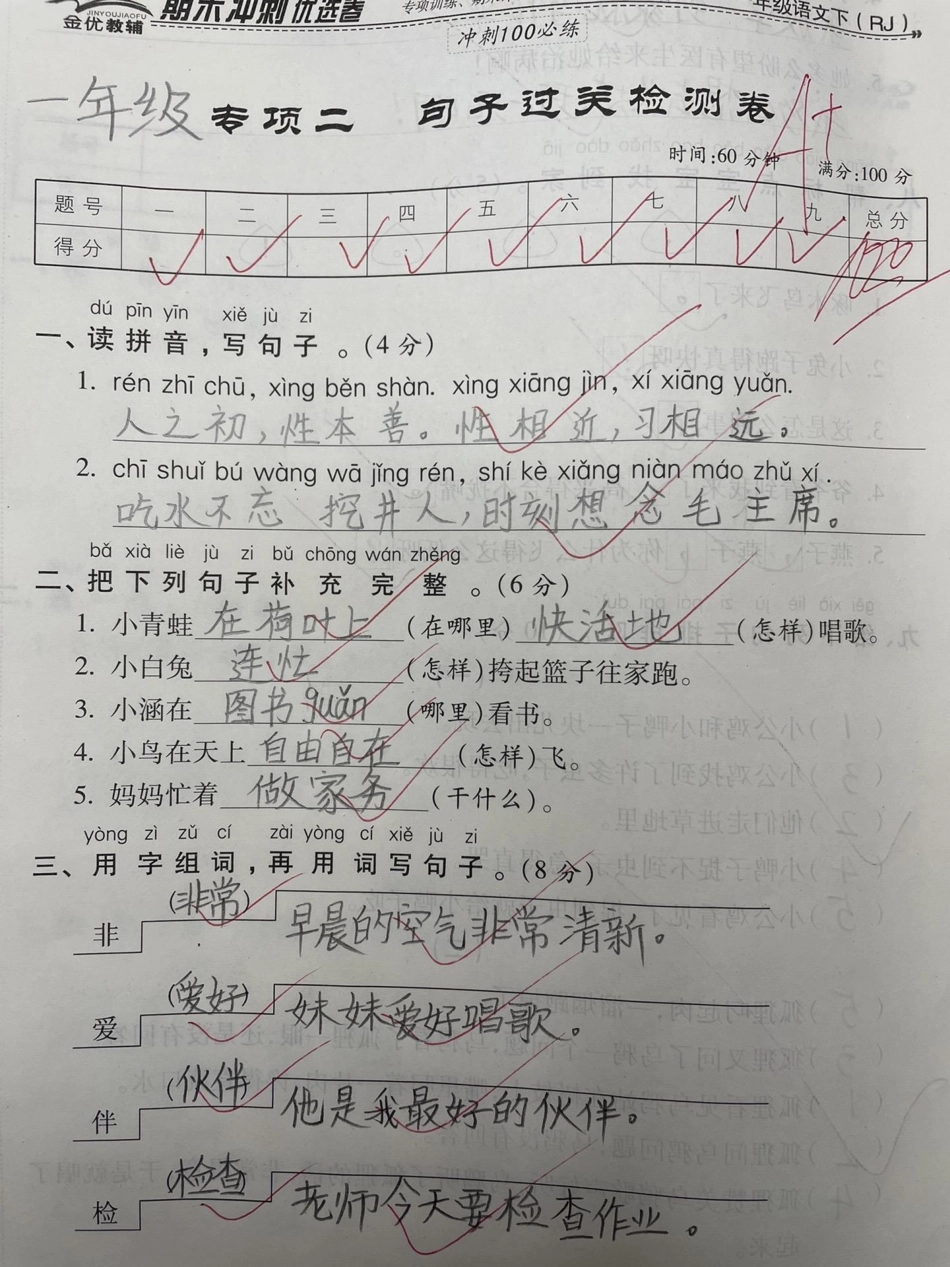 JINYOUJIAOFU
金优教辅
期末冲刺优选卷
冲刺100必练
年级语文下(RJ)
一年级 专项二 句子过关检测卷
A+
时间:60分钟 满分:100分
题号 一 二 三 四 五 六 七 八 九 总分
得分 100
dú pīn yīn xiě jù zi
一、读拼音,写句子。(4分)
1. rén zhī chū, xìng běn shàn. xìng xiāng jìn, xí xiāng yuǎn.
人之初,性本善。性相近,习相远。
2. chī shuǐ bú wàng wā jǐng rén, shí kè xiǎng niàn máo zhǔ xí.
吃水不忘 挖井人,时刻想念毛主席。
bǎ xià liè jù zi bǔ chōng wán zhěng
二、把下列句子补充完整。(6分)
1. 小青蛙在荷叶上(在哪里)快活地(怎样)唱歌。
2. 小白兔连忙(怎样)挎起篮子往家跑。
3. 小涵在图书guǎn(哪里)看书。
4. 小鸟在天上自由自在(怎样)飞。
5. 妈妈忙着做家务(干什么)。
yòng zì zǔ cí zài yòng cí xiě jù zi
三、用字组词,再用词写句子。(8分)
非 (非常) 早晨的空气非常清新。
爱 (爱好) 妹妹爱好唱歌。
伴 (伙伴) 他是我最好的伙伴。
检 (检查) 老师今天要检查作业。